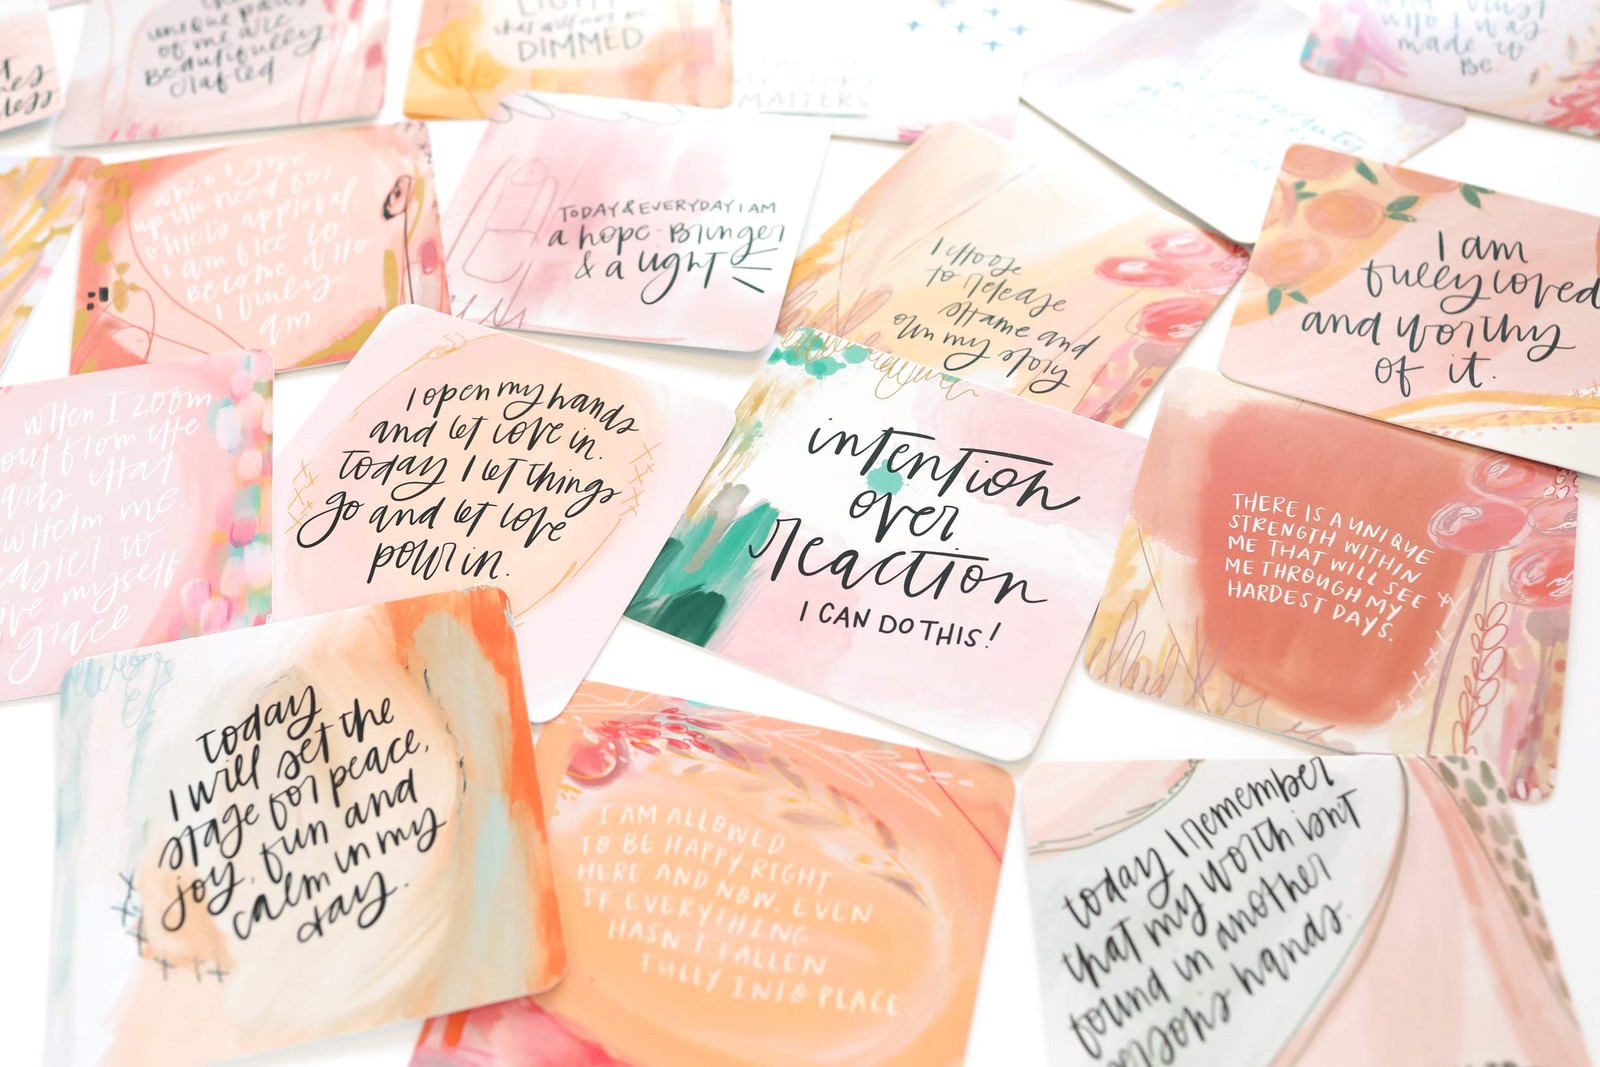 unique parts
of me are
beautifully
crafted
LIGHT
that will not be
DIMMED
MY STORY
MATTERS
who I was
made to
Be
when I give
up the need for
other's approval,
I am free to
become who
I truly
am.
TODAY & EVERYDAY I AM
a hope-Bringer
& a light
I choose
to release
shame and
own my story
I am
fully loved
and worthy
of it.
when I zoom
out from the
that
me,
easier to
myself
grace.
I open my hands
and let love in.
Today I let things
go and let love
pour in.
intention
over
reaction
I CAN DO THIS!
THERE IS A UNIQUE
STRENGTH WITHIN
ME THAT WILL SEE
ME THROUGH MY
HARDEST DAYS.
today
I will set the
stage for peace,
joy, fun and
calm in my
day.
I AM ALLOWED
TO BE HAPPY RIGHT
HERE AND NOW, EVEN
IF EVERYTHING
HASN'T FALLEN
FULLY INTO PLACE.
today I remember
that my worth isn't
found in another
person's hands.